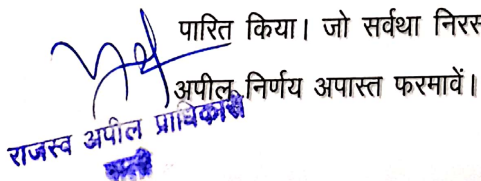 पारित किया। जो सर्वथा निरस
अपील निर्णय अपास्त फरमावें।
राजस्व अपील प्राधिकारी